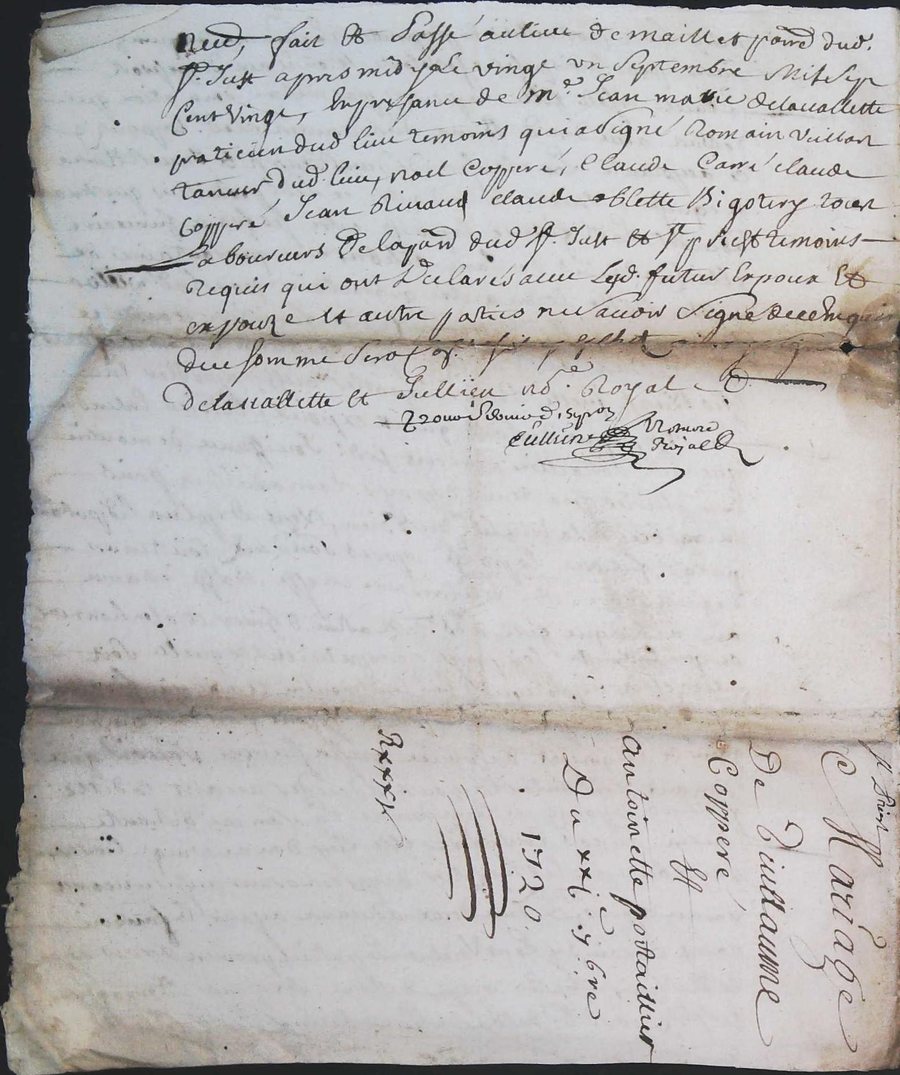 fait et Passé au lieu de maillet parrd dud.
St. Just apres midy Le vingt un Septembre Mil Sep
Cent vingt, En presance de me. Jean marie delavallette
praticien dud lieu temoins qui a Signé Romain
dud lieu, noel Copperé, Claude Carré claude
Copperé Jean Rinaud claude oblette
Laboureurs De la parrd dud St. Just et St priest temoins
Requis qui ont Declares avec Led. futur Expoux Et
expouze et autre parties ne scavoir Signé de ce Enquis
Delavallette et Jullien nore. Royal
Jullien Notaire
Royal
St Priest
Mariage
De Guillaume
Copperé
Et
Antoinette portaillier
Du xxi 7bre
1720